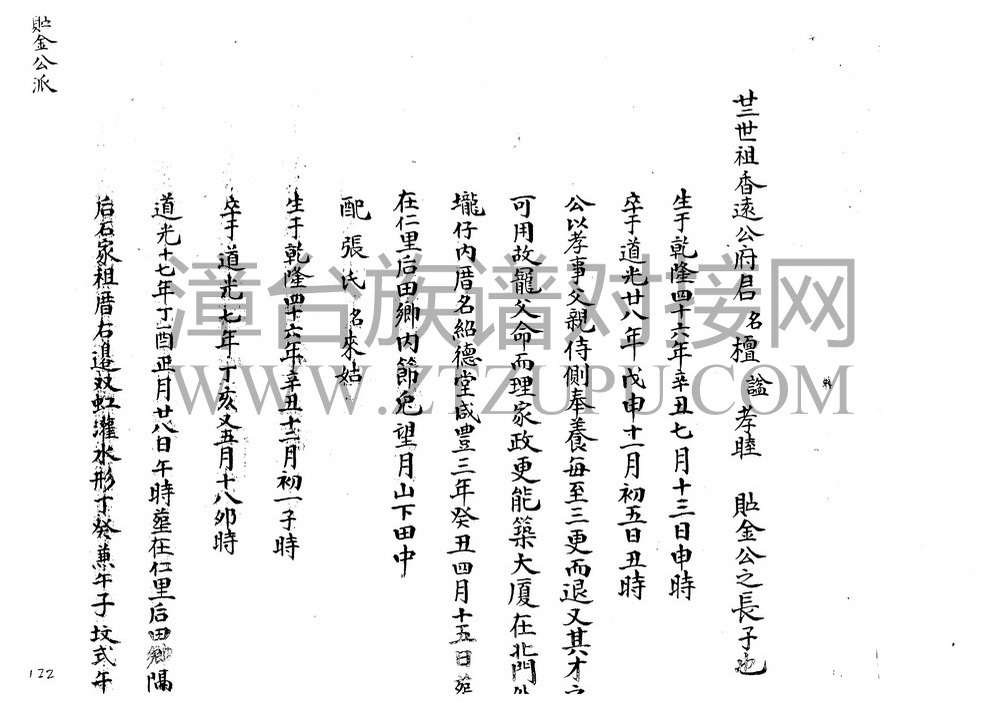 廿三世祖香遠公府君 名檀 諡孝睦 貯金公之長子也
生于乾隆四十六年辛丑七月十三日申時
卒于道光廿八年戊申十一月初五日丑時
公以孝事父親侍側奉養每至三更而退又其才
可用故寵父命而理家政更能築大厦在北門
壠仔内厝名紹德堂咸豊三年癸丑四月十五日
在仁里后田鄉内節兔望月山下田中
配張氏 名來姑
生于乾隆四十六年辛丑十二月初一子時
卒于道光七年丁亥又五月十八夘時
道光十七年丁酉正月廿八日午時塟在仁里后田鄉隔
后石家祖厝右邉双虹灌水形丁癸兼午子坟式午
貯金公派
122
漳台族谱对接网
WWW.ZTZUPU.COM